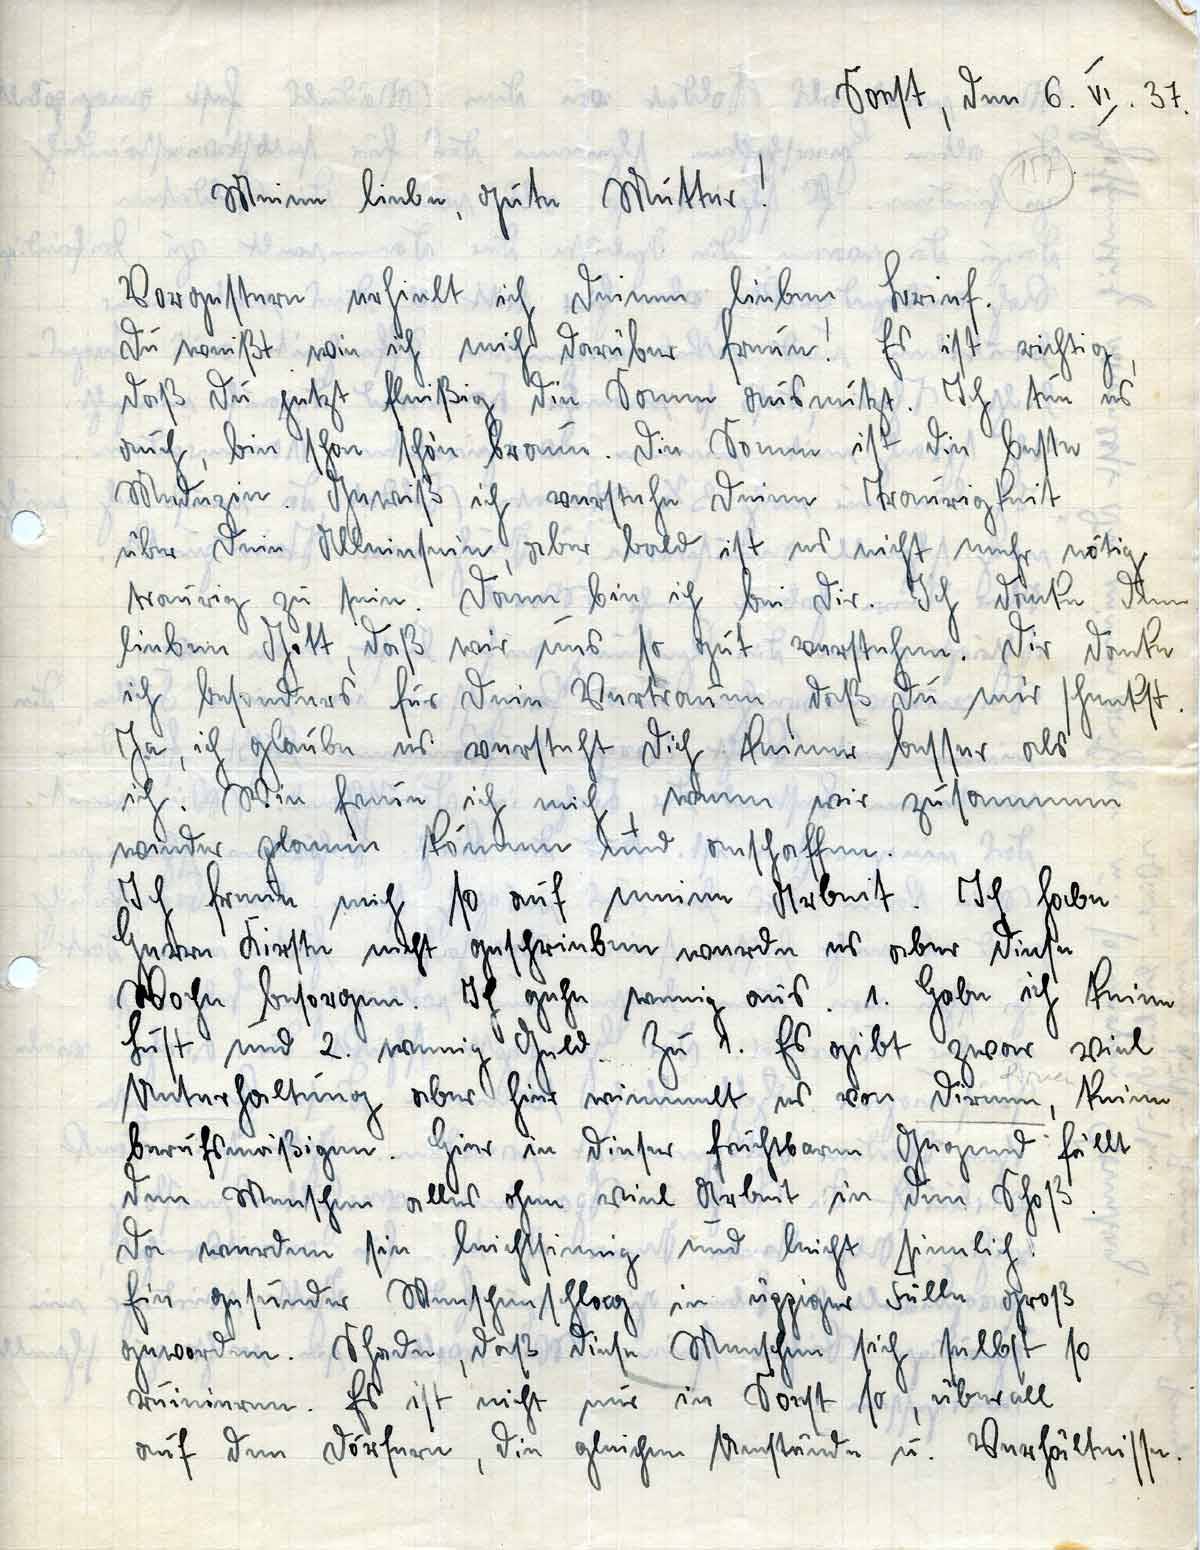 Soest, den 6. VI. 37.
157
Meine liebe, gute Mutter!
Vorgestern erhielt ich Deinen lieben Brief.
Du weißt wie ich mich darüber freue! Es ist richtig,
daß Du jetzt fleißig die Sonne ausnützt. Ich tue es
auch, bin schon schön braun. Die Sonne ist die beste
Medezin. Gewiß ich verstehe Deine Traurigkeit
über Dein Alleinsein, aber bald ist es nicht mehr nötig
traurig zu sein. Dann bin ich bei Dir. Ich danke dem
lieben Gott, daß wir uns so gut verstehen. Dir danke
ich besonders für Dein Vertrauen daß Du mir schenkst.
Ja, ich glaube es versteht Dich keiner besser als
ich. Wie freue ich mich, wenn wir zusammen
wieder planen können und anschaffen.
Ich freue mich so auf meine Arbeit. Ich habe
Herrn Kirste nicht geschrieben werde es aber diese
Woche besorgen. Ich gehe wenig aus. 1. Habe ich keine
Lust und 2. wenig Geld. Zu 1. Es gibt zwar viel
Unterhaltung aber hier wimmelt es von Dirnen, keine
berufsmäßigen. Hier in dieser fruchtbaren Gegend fällt
den Menschen alles ohne viel Arbeit in den Schoß.
Da werden sie leichtsinnig und leicht sinnlich.
Ein gesunder Menschenschlag in üppiger Fülle groß
geworden. Schade, daß diese Menschen sich selbst so
ruinieren. Es ist nicht nur in Soest so, überall
auf den Dörfern, die gleichen Umstände u. Verhältnisse.